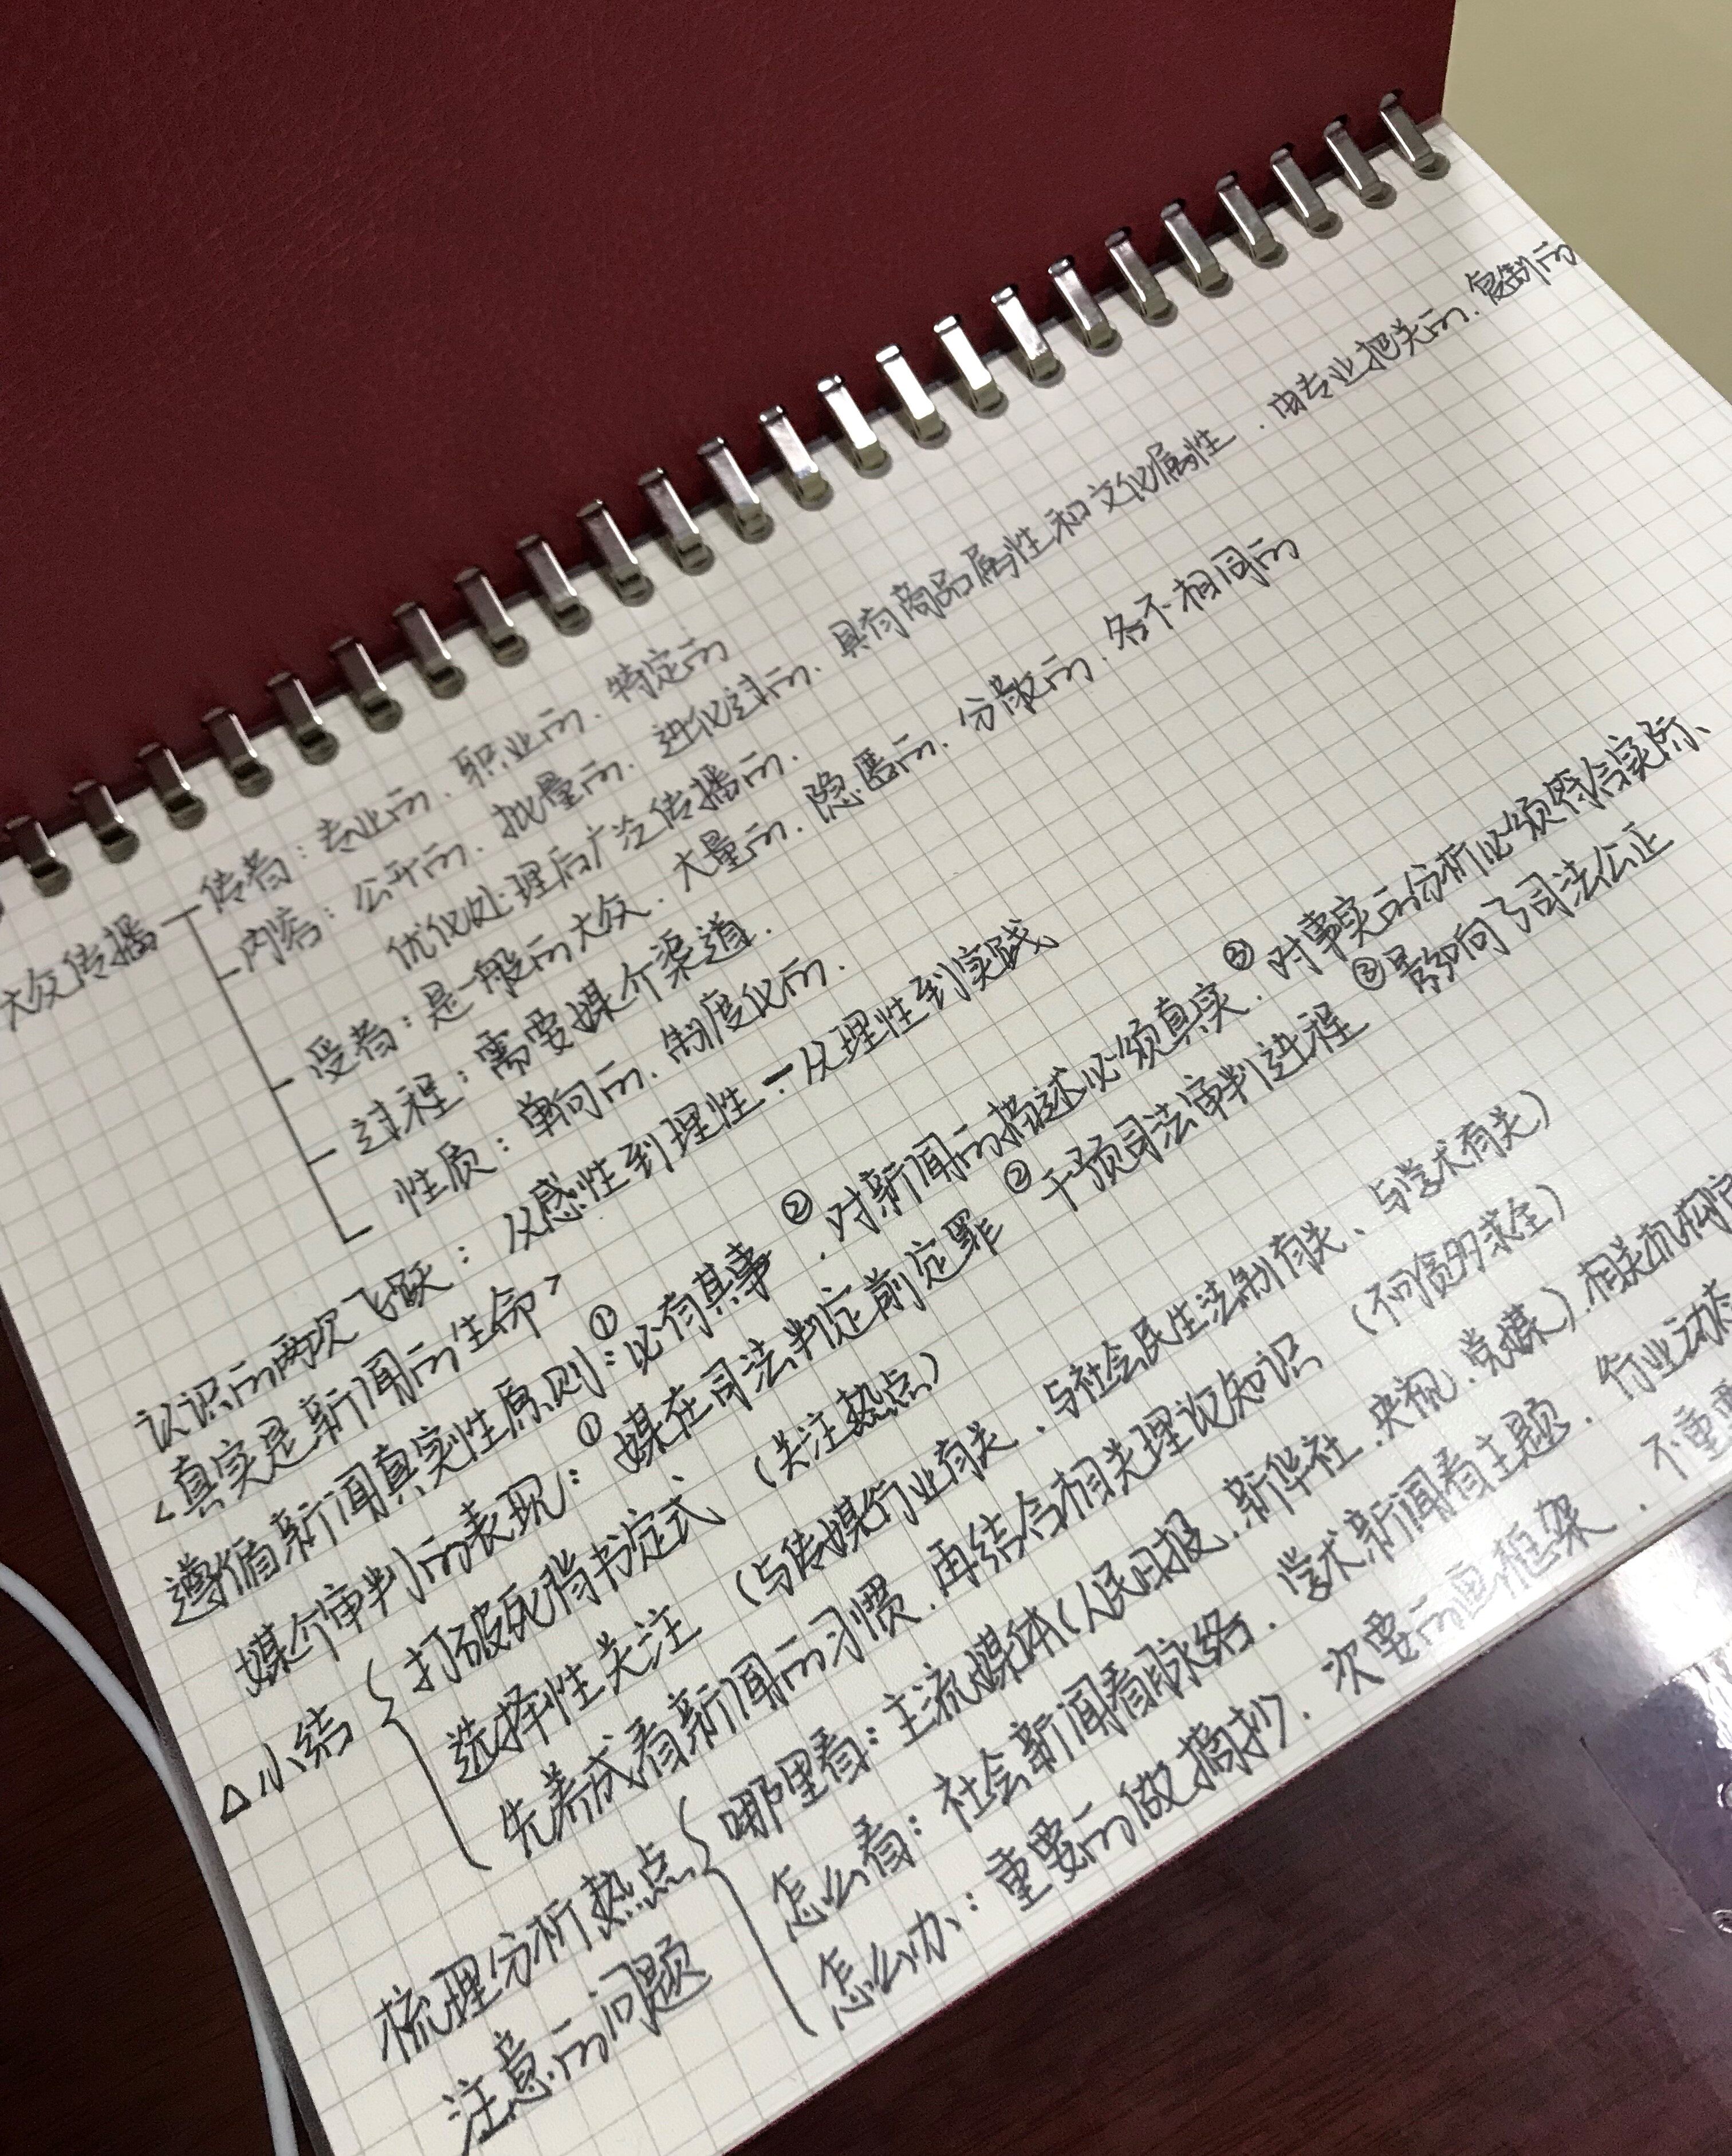 大众传播
传者：专业的、职业的、特定的
内容：公开的、批量的、进化过的、具有商品属性和文化属性、由专业把关的、复制的
优化处理后广泛传播的、
受者：是一般的大众、大量的、隐匿的、分散的、各不相同的
过程：需要媒介渠道.
性质：单向的、制度化的.
认识的两次飞跃：从感性到理性一从理性到实践
<真实是新闻的生命>
遵循新闻真实性原则：①必有其事、②对新闻的描述必须真实、③对事实的分析必须符合实际、
媒介审判的表现：①媒在司法判定前定罪 ②干预司法审判进程 ③影响了司法公正
△小结
打破死背书定式（关注热点）
选择性关注（与传媒行业有关、与社会民生法制有关、与学术有关）
先养成看新闻的习惯、再结合相关理论知识（不问贪多求全）
梳理分析热点
注意的问题
哪里看：主流媒体（人民日报、新华社、央视、党媒）、相关机构
怎么看：社会新闻看脉络、学术新闻看主题、行业动态
怎么办：重要的做摘抄、次要的画框架、不重要